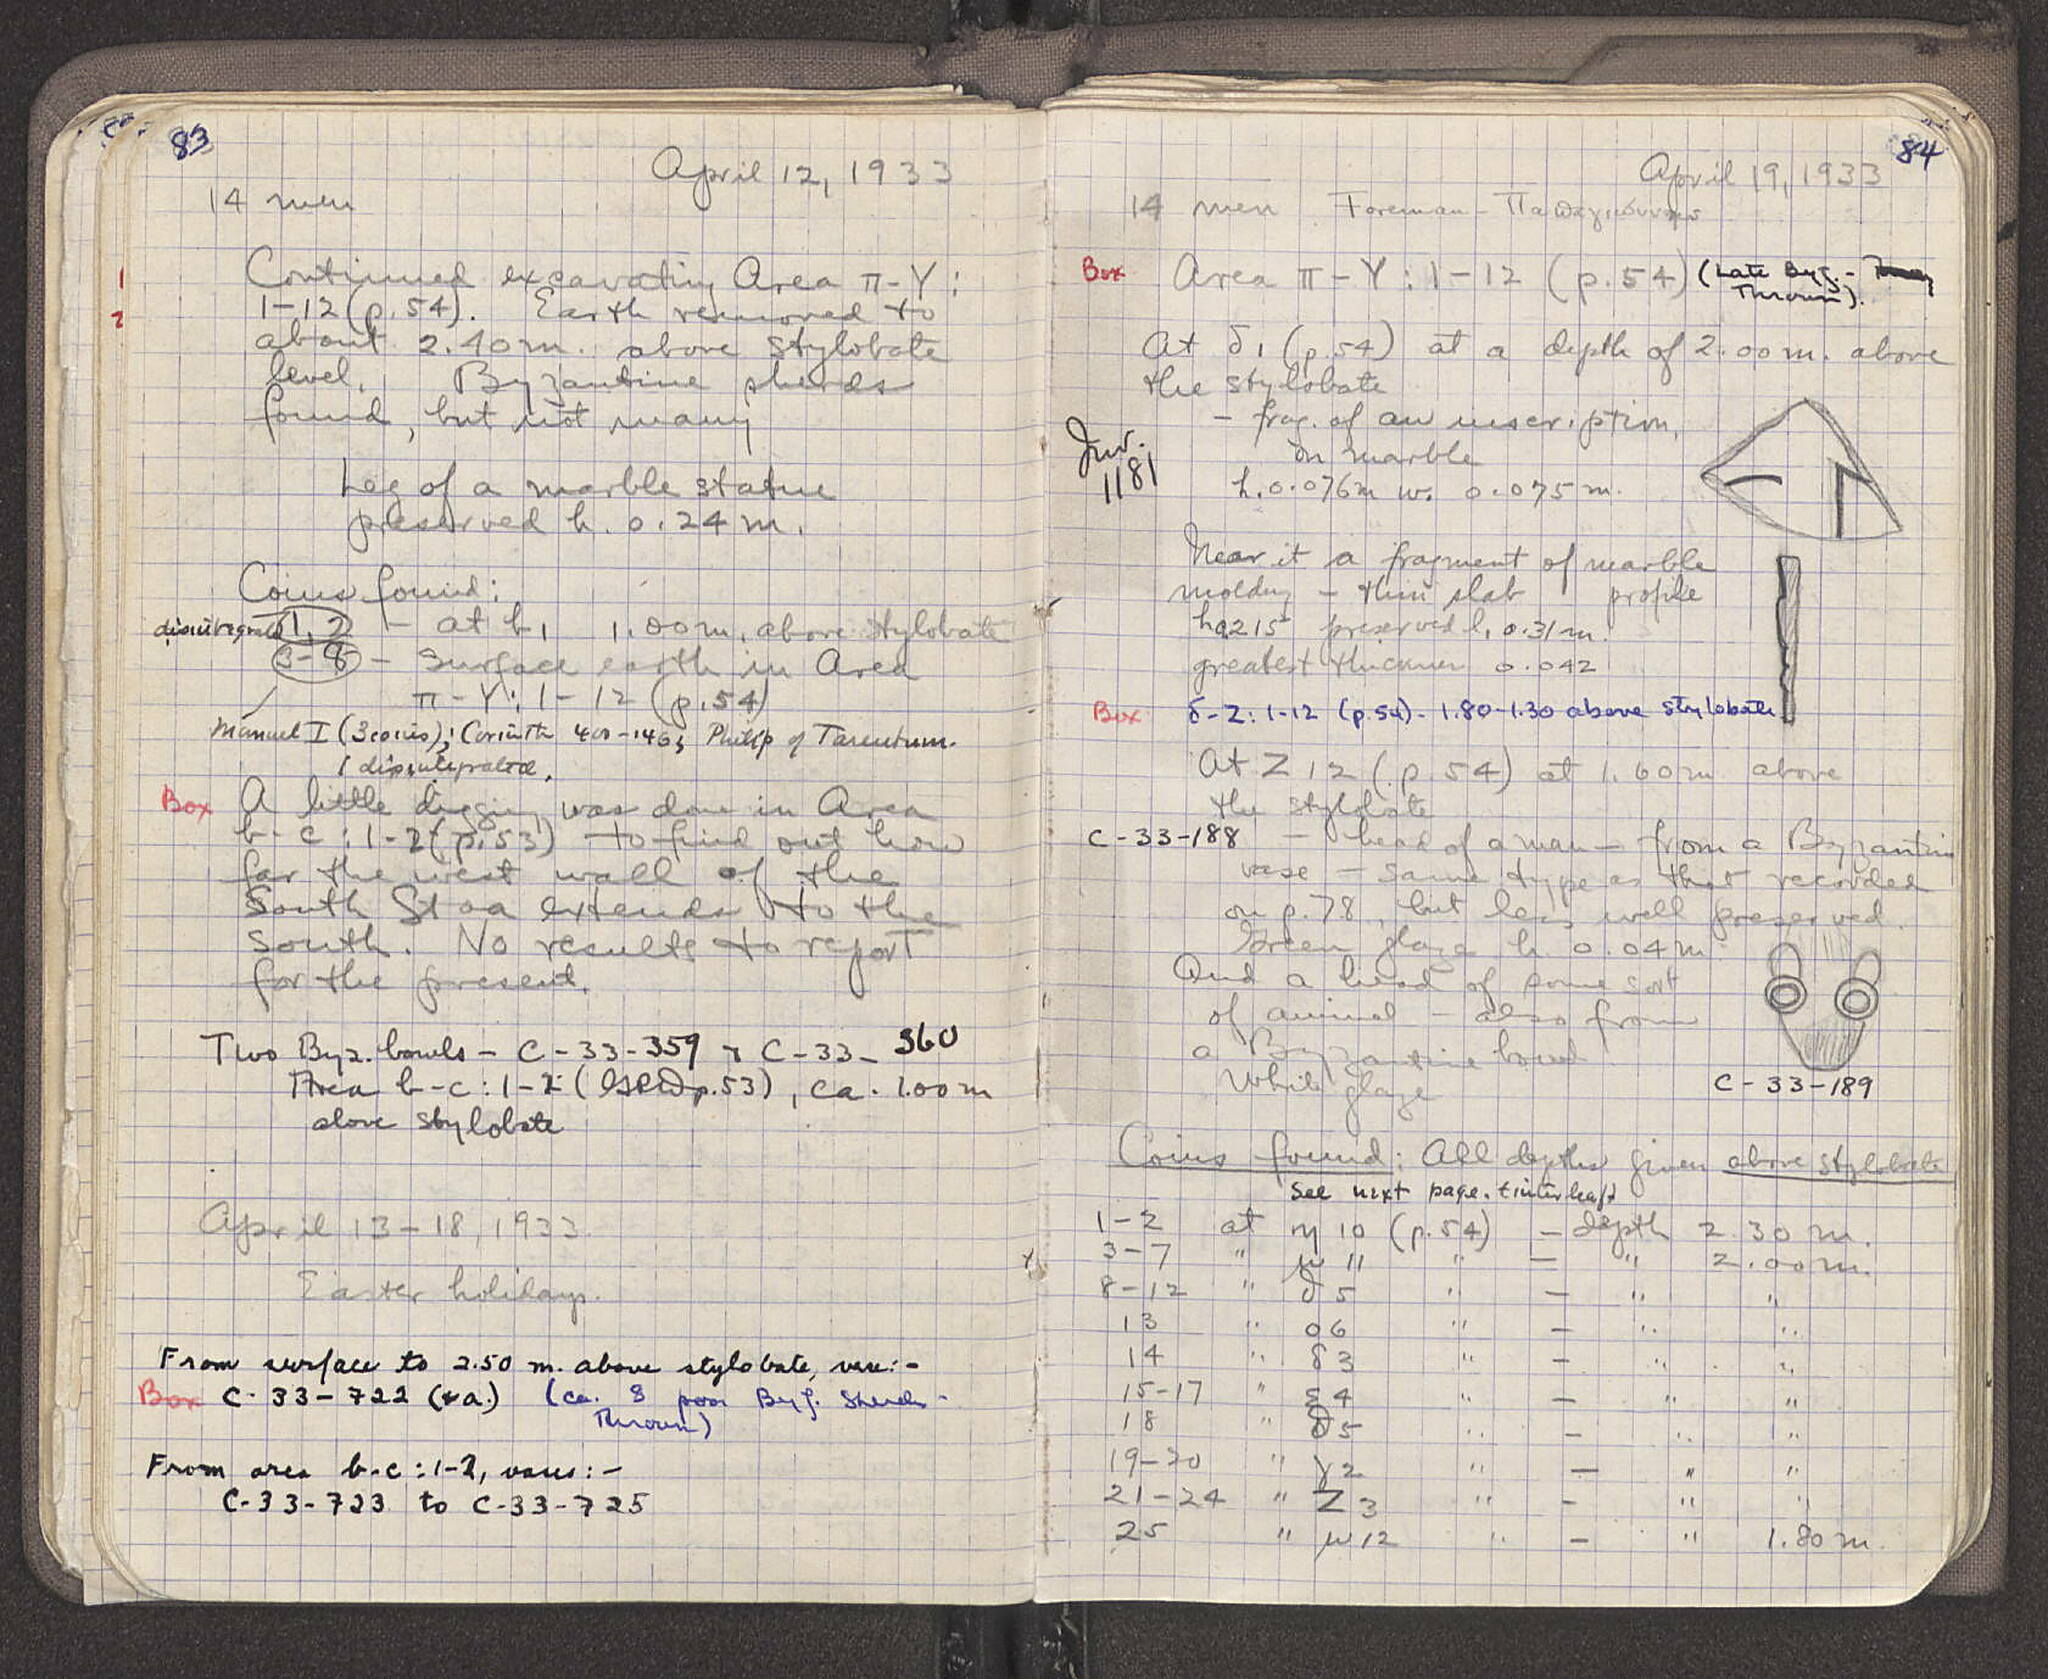 83
April 12, 1933
14 men
1
2
Continued excavating Area π-Υ:
1-12 (p.54). Earth removed to
about 2.40 m. above stylobate
level. Byzantine sherds
found, but not many
Leg of a marble statue
preserved h. 0.24 m.
Coins found:
disintegrated 1, 2 - at b1 1.00 m. above stylobate
3-8 - Surface earth in Area
π-Υ: 1-12 (p.54)
Manuel I (3 coins); Corinth 400-146; Philip of Tarentum.
1 disintegrated.
Box A little digging was done in Area
b-c: 1-2 (p.53) to find out how
far the west wall of the
South Stoa extends to the
South. No results to report
for the present.
Two Byz. bowls - C-33-359 + C-33-360
Area b-c: 1-2 (p.53), ca. 1.00 m
above stylobate
April 13-18, 1933.
Easter holidays.
From surface to 2.50 m. above stylobate, vase:-
Box C-33-722 (+a.) (ca. 8 poor Byz. Sherds -
Thrown)
From area b-c: 1-2, vases:-
C-33-723 to C-33-725
84
April 19, 1933
14 men Foreman -
Box Area π-Υ: 1-12 (p.54) (Late Byz. -
Thrown).
At δ1 (p.54) at a depth of 2.00 m. above
the stylobate
- frag. of an inscription,
Inv.
1181
on marble
h. 0.076m w. 0.075 m.
Near it a fragment of marble
molding - thin slab profile
h 0.215 preserved l. 0.31 m.
greatest thickness 0.042
Box δ-Ζ: 1-12 (p.54) - 1.80-1.30 above stylobate
At Ζ12 (p.54) at 1.60 m above
the stylobate
C-33-188 - head of a man - from a Byzantine
vase - same type as that recorded
on p.78, but less well preserved.
Green glaze h. 0.04 m.
And a head of some sort
of animal - also from
a Byzantine bowl
White glaze
C-33-189
Coins found: All depths given above stylobate
See next page. + interleaf
1-2 at η10 (p.54) - depth 2.30 m.
3-7 " μ11 " - " 2.00 m.
8-12 " δ5 " - " "
13 " ο6 " - " "
14 " δ3 " - " "
15-17 " ς4 " - " "
18 " δ5 " - " "
19-20 " γ2 " - " "
21-24 " Ζ3 " - " "
25 " μ12 " - " 1.80 m.